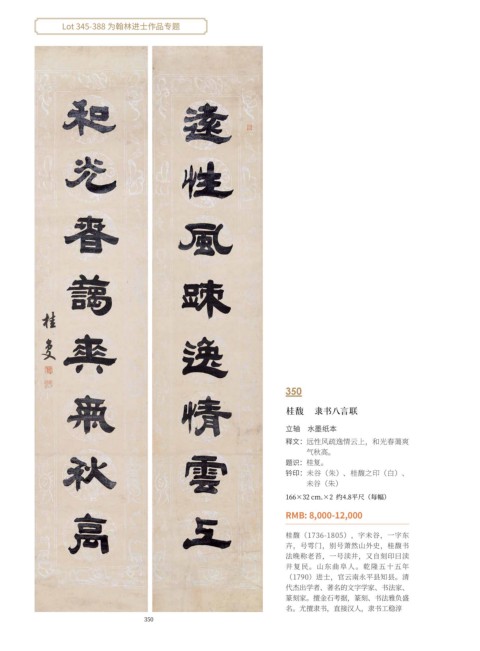 Lot 345-388 为翰林进士作品专题
遠性風疎逸情雲上
和光春藹爽氣秋高
桂复
350
桂馥 隶书八言联
立轴 水墨纸本
释文：远性风疏逸情云上，和光春蔼爽
气秋高。
题识：桂复。
钤印：未谷（朱）、桂馥之印（白）、
未谷（朱）
166×32 cm.×2 约4.8平尺（每幅）
RMB: 8,000-12,000
桂馥（1736-1805），字未谷，一字东
卉，号雩门，别号萧然山外史，桂馥书
法晚称老苔，一号渎井，又自刻印曰渎
井复民。山东曲阜人。乾隆五十五年
（1790）进士，官云南永平县知县。清
代杰出学者。著名的文字学家、书法家、
篆刻家。擅金石考据，篆刻、书法雅负盛
名。尤擅隶书，直接汉人。隶书工稳淳
350